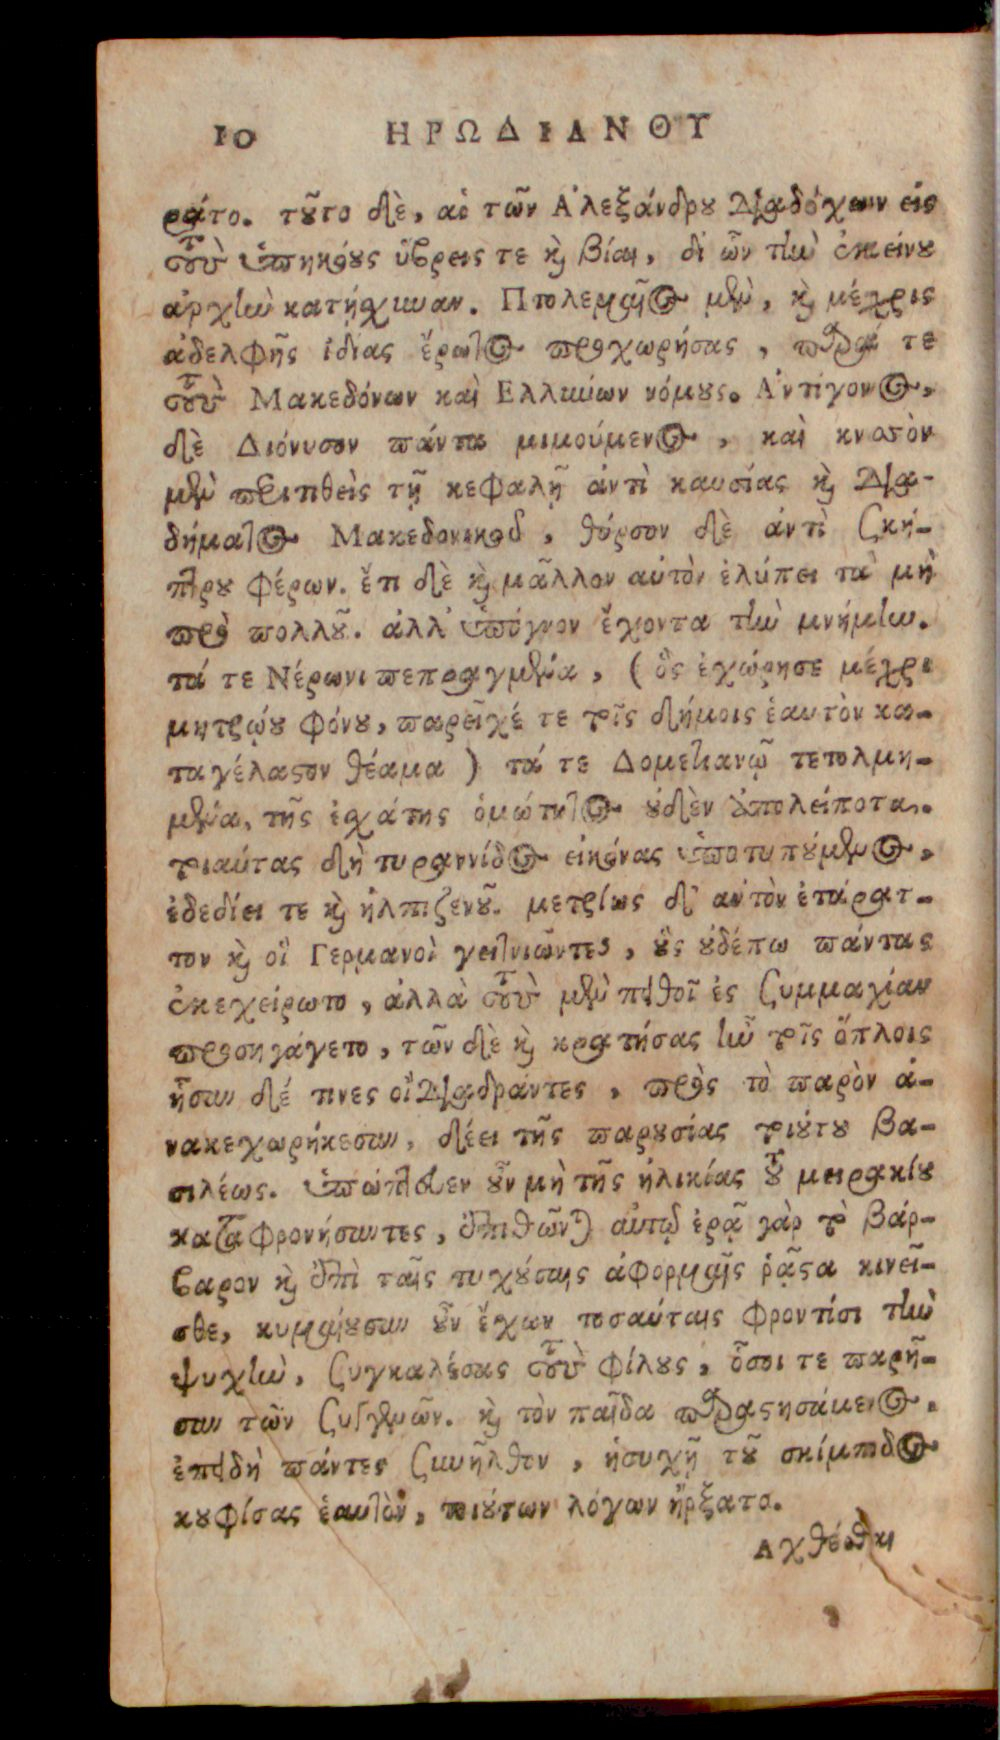 10 ΗΡΩΔΙΑΝΟΥ
ράτο. τοῦτο δὲ, αἱ τῶν Ἀλεξάνδρου διαδόχων εἰς
τοὺς ὑπηκόους ὕβρεις τε καὶ βίαι, δι ὧν τὴν ἐκείνου
ἀρχὴν κατῄσχυναν. Πτολεμαῖος μὲν, καὶ μέχρις
ἀδελφῆς ἰδίας ἔρωτος προχωρήσας, παρά τε
τοὺς Μακεδόνων καὶ Ελλήνων νόμους. Ἀντίγονος,
δὲ Διόνυσον πάντα μιμούμενος, καὶ κισσὸν
μὲν περιτιθεὶς τῇ κεφαλῇ ἀντὶ καυσίας καὶ δια-
δήματος Μακεδονικοῦ, θύρσον δὲ ἀντὶ σκή-
πτρου φέρων. ἔτι δὲ καὶ μᾶλλον αὐτὸν ἐλύπει τὰ μὴ
πρὸ πολλοῦ. ἀλλ' ὑπόγυον ἔχοντα τὴν μνήμην.
τά τε Νέρωνι πεπραγμένα, (ὃς ἐχώρησε μέχρι
μητρῴου φόνου, παρεῖχέ τε τοῖς δήμοις ἑαυτὸν κα-
ταγέλαστον θέαμα) τά τε Δομετιανῷ τετολμη-
μένα, τῆς ἐσχάτης ὠμότητος οὐδὲν ἀπολείποντα.
τοιαύτας δὴ τυραννίδος εἰκόνας ὑποτυπούμενος,
ἐδεδίει τε καὶ ἤλπιζεν οὖ. μετρίως δ' αὐτὸν ἐτάρατ-
τον καὶ οἱ Γερμανοὶ γειτνιῶντες, οὓς οὐδέπω πάντας
ἐκεχείρωτο, ἀλλὰ τοὺς μὲν πειθοῖ ἐς συμμαχίαν
προσηγάγετο, τῶν δὲ καὶ κρατήσας ἦν τοῖς ὅπλοις
ἦσαν δέ τινες οἳ διαδράντες, πρὸς τὸ παρὸν ἀ-
νακεχωρήκεσαν, δέει τῆς παρουσίας τοιούτου βα-
σιλέως. ὑπώπτευεν οὖν μὴ τῆς ἡλικίας τοῦ μειρακίου
καταφρονήσαντες, ἐπιθῶνται αὐτῷ ἐρᾷ γὰρ τὸ βάρ-
βαρον καὶ ἐπὶ ταῖς τυχούσαις ἀφορμαῖς ῥᾷστα κινεῖ-
σθαι, κυμαίνουσαν οὖν ἔχων τοσαύταις φροντίσι τὴν
ψυχὴν, συγκαλέσας τοὺς φίλους, ὅσοι τε παρῆ-
σαν τῶν συγγενῶν. καὶ τὸν παῖδα παραστησάμενος.
ἐπειδὴ πάντες συνῆλθον, ἡσυχῆ τοῦ σκίμποδος
κουφίσας ἑαυτὸν, τοιούτων λόγων ἤρξατο.
Αχθέσθαι